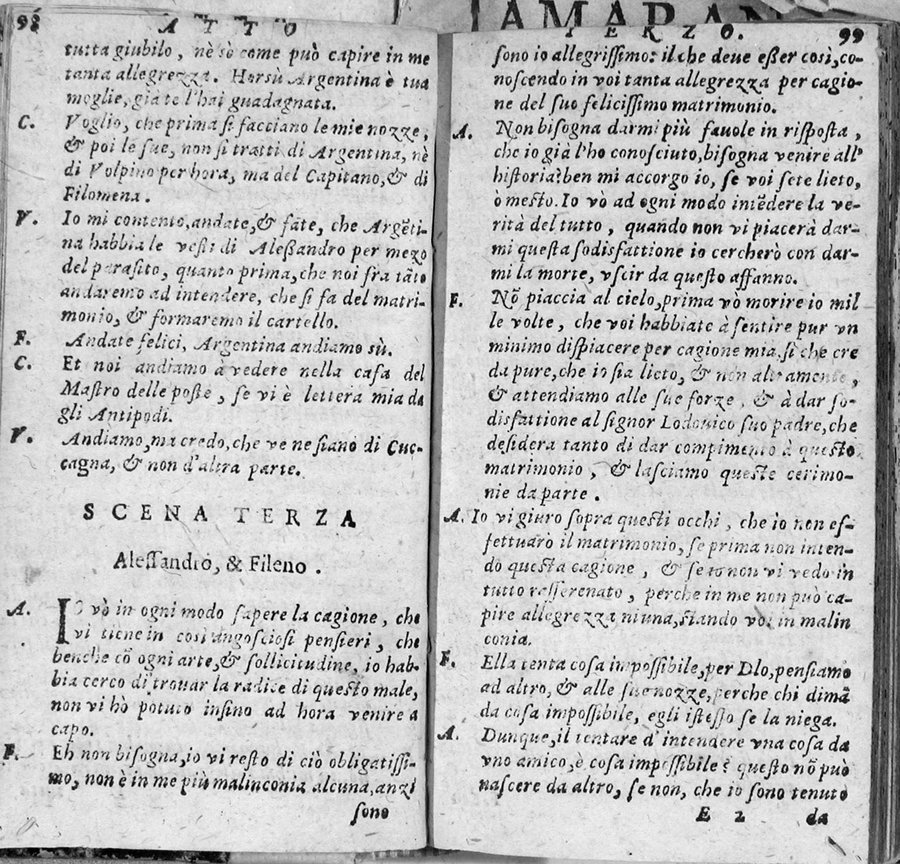 98 ATTO
tutta giubilo, nè sò come può capire in me
tanta allegrezza. Horsù Argentina è tua
moglie, già te l'hai guadagnata.
C. Voglio, che prima si facciano le mie nozze,
& poi le sue, non si tratti di Argentina, nè
di Volpino per hora, ma del Capitano, & di
Filomena.
V. Io mi contento, andate, & fate, che Argẽti
na habbia le vesti di Aleßandro per mezo
del parasito, quanto prima, che noi fra tãto
andaremo ad intendere, che si fa del matri-
monio, & formaremo il cartello.
F. Andate felici, Argentina andiamo sù.
C. Et noi andiamo a vedere nella casa del
Mastro delle poste, se vi è lettera mia da
gli Antipodi.
V. Andiamo, ma credo, che ve ne siano di Cuc-
cagna, & non d'altra parte.
SCENA TERZA
Alessandro, & Fileno.
A. IO vò in ogni modo sapere la cagione, che
vi tiene in così angosciosi pensieri, che
benche cõ ogni arte, & sollicitudine, io hab-
bia cerco di trouar la radice di questo male,
non vi hò potuto insino ad hora venire a
capo.
F. Eh non bisogna, io vi resto di ciò obligatissi-
mo, non è in me più malinconia alcuna, anzi
sono
TERZO. 99
sono io allegrissimo: il che deve eßer così, co-
noscendo in voi tanta allegrezza per cagio-
ne del suo felicissimo matrimonio.
A. Non bisogna darmi più fauole in risposta,
che io già l'ho conosciuto, bisogna venire all'
historia: ben mi accorgo io, se voi sete lieto,
ò mesto. Io vò ad ogni modo intẽdere la ve-
rità del tutto, quando non vi piacerà dar-
mi questa sodisfattione io cercherò con dar-
mi la morte, vscir da questo affanno.
F. Nõ piaccia al cielo, prima vò morire io mil
le volte, che voi habbiate à sentire pur vn
minimo dispiacere per cagione mia. sì che cre
da pure, che io sia lieto, & non altramente,
& attendiamo alle sue forze, & à dar so-
disfattione al signor Lodouico suo padre, che
desidera tanto di dar compimento à questo
matrimonio, & lasciamo queste cerimo-
nie da parte.
A. Io vi giuro sopra questi occhi, che io non ef-
fettuarò il matrimonio, se prima non inten-
do questa cagione, & se io non vi vedo in
tutto rasserenato, perche in me non può ca-
pire allegrezza niuna, stando voi in malin
conia.
F. Ella tenta cosa impossibile, per Dio, pensiamo
ad altro, & alle sue nozze, perche chi dimã
da cosa impossibile, egli istesso se la niega.
A. Dunque, il tentare d'intendere vna cosa da
vno amico, è cosa impossibile? questo nõ può
nascere da altro, se non, che io sono tenuto
E 2 da